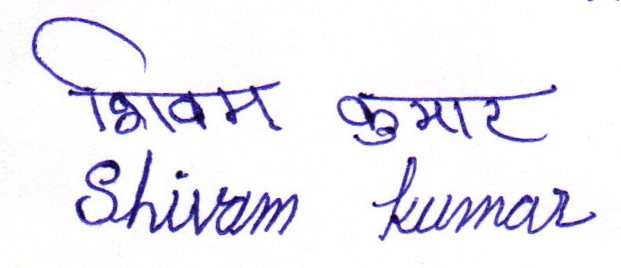 शिवम कुमार
Shivam kumar